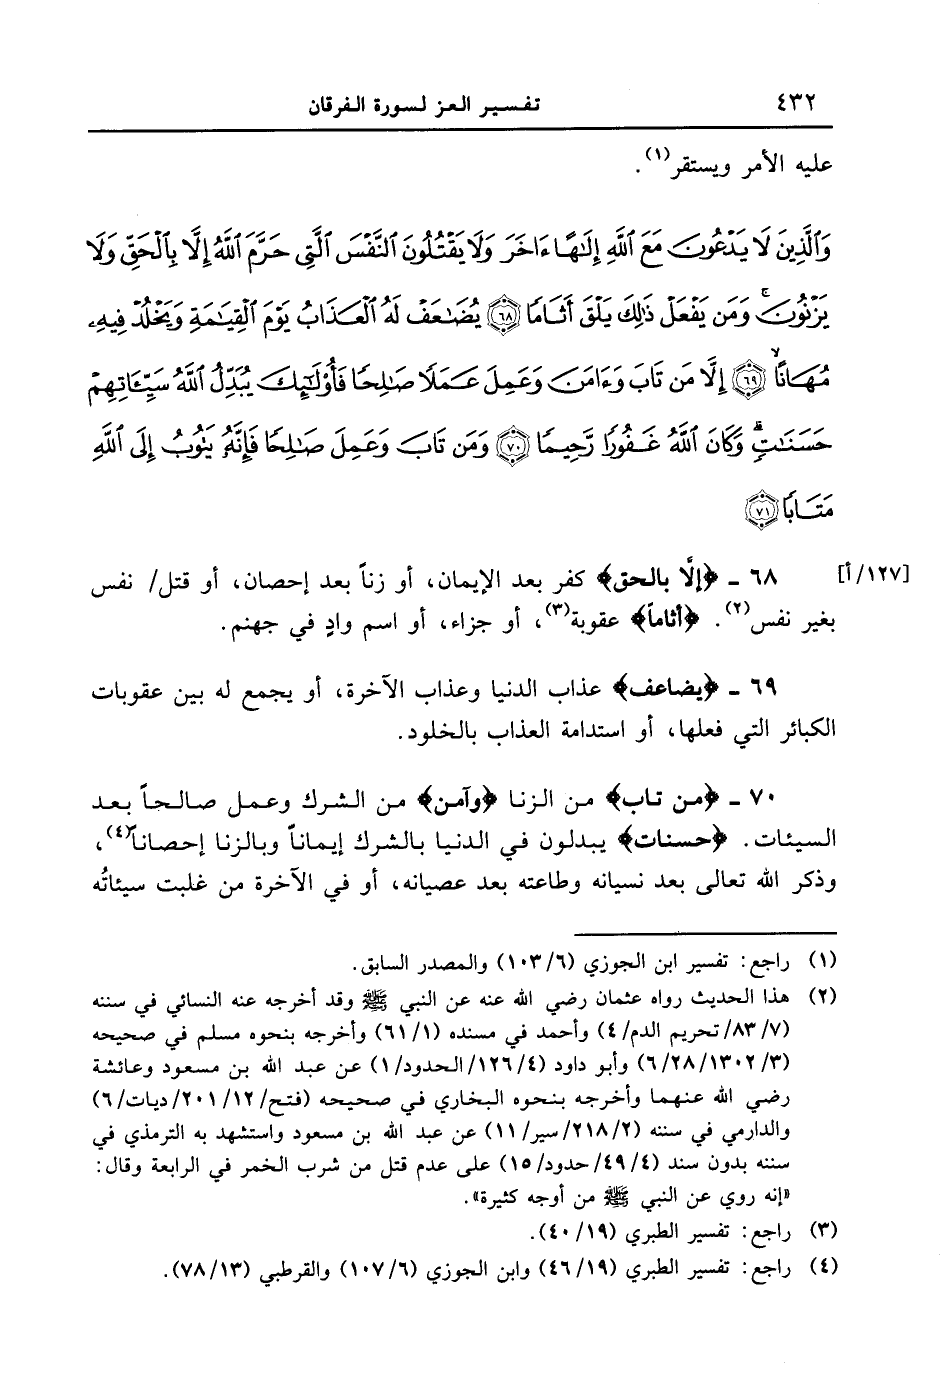 ٤٣٢ تفسير العز لسورة الفرقان
عليه الأمر ويستقر(١).
وَالَّذِينَ لَا يَدْعُونَ مَعَ اللَّهِ إِلَٰهًا ءَاخَرَ وَلَا يَقْتُلُونَ النَّفْسَ الَّتِي حَرَّمَ اللَّهُ إِلَّا بِالْحَقِّ وَلَا
يَزْنُونَ ۚ وَمَن يَفْعَلْ ذَٰلِكَ يَلْقَ أَثَامًا ﴿٦٨﴾ يُضَٰعَفْ لَهُ الْعَذَابُ يَوْمَ الْقِيَٰمَةِ وَيَخْلُدْ فِيهِۦ
مُهَانًا ﴿٦٩﴾ إِلَّا مَن تَابَ وَءَامَنَ وَعَمِلَ عَمَلًا صَٰلِحًا فَأُو۟لَٰٓئِكَ يُبَدِّلُ اللَّهُ سَيِّـَٔاتِهِمْ
حَسَنَٰتٍ ۗ وَكَانَ اللَّهُ غَفُورًا رَّحِيمًا ﴿٧٠﴾ وَمَن تَابَ وَعَمِلَ صَٰلِحًا فَإِنَّهُۥ يَتُوبُ إِلَى اللَّهِ
مَتَابًا ﴿٧١﴾
[١٢٧/أ] ٦٨ ـ ﴿إلَّا بالحق﴾ كفر بعد الإيمان، أو زناً بعد إحصان، أو قتل/ نفس
بغير نفس(٢). ﴿أثاماً﴾ عقوبة(٣)، أو جزاء، أو اسم وادٍ في جهنم.
٦٩ ـ ﴿يضاعف﴾ عذاب الدنيا وعذاب الآخرة، أو يجمع له بين عقوبات
الكبائر التي فعلها، أو استدامة العذاب بالخلود.
٧٠ ـ ﴿من تاب﴾ من الزنا ﴿وآمن﴾ من الشرك وعمل صالحاً بعد
السيئات. ﴿حسنات﴾ يبدلون في الدنيا بالشرك إيماناً وبالزنا إحصاناً(٤)،
وذكر الله تعالى بعد نسيانه وطاعته بعد عصيانه، أو في الآخرة من غلبت سيئاتُه
(١) راجع: تفسير ابن الجوزي (١٠٣/٦) والمصدر السابق.
(٢) هذا الحديث رواه عثمان رضي الله عنه عن النبي ﷺ وقد أخرجه عنه النسائي في سننه
(٧/ ٨٣/ تحريم الدم/٤) وأحمد في مسنده (٦١/١) وأخرجه بنحوه مسلم في صحيحه
(٣/ ٦/٢٨/١٣٠٢) وأبو داود (٤/ ١٢٦/ الحدود/١) عن عبد الله بن مسعود وعائشة
رضي الله عنهما وأخرجه بنحوه البخاري في صحيحه (فتح/ ١٢/ ٢٠١/ ديات/٦)
والدارمي في سننه (٢١٨/٢/ سير/ ١١) عن عبد الله بن مسعود واستشهد به الترمذي في
سننه بدون سند (٤/ ٤٩/ حدود/١٥) على عدم قتل من شرب الخمر في الرابعة وقال:
«إنه روي عن النبي ﷺ من أوجه كثيرة».
(٣) راجع: تفسير الطبري (٤٠/١٩).
(٤) راجع: تفسير الطبري (٤٦/١٩) وابن الجوزي (١٠٧/٦) والقرطبي (٧٨/١٣).